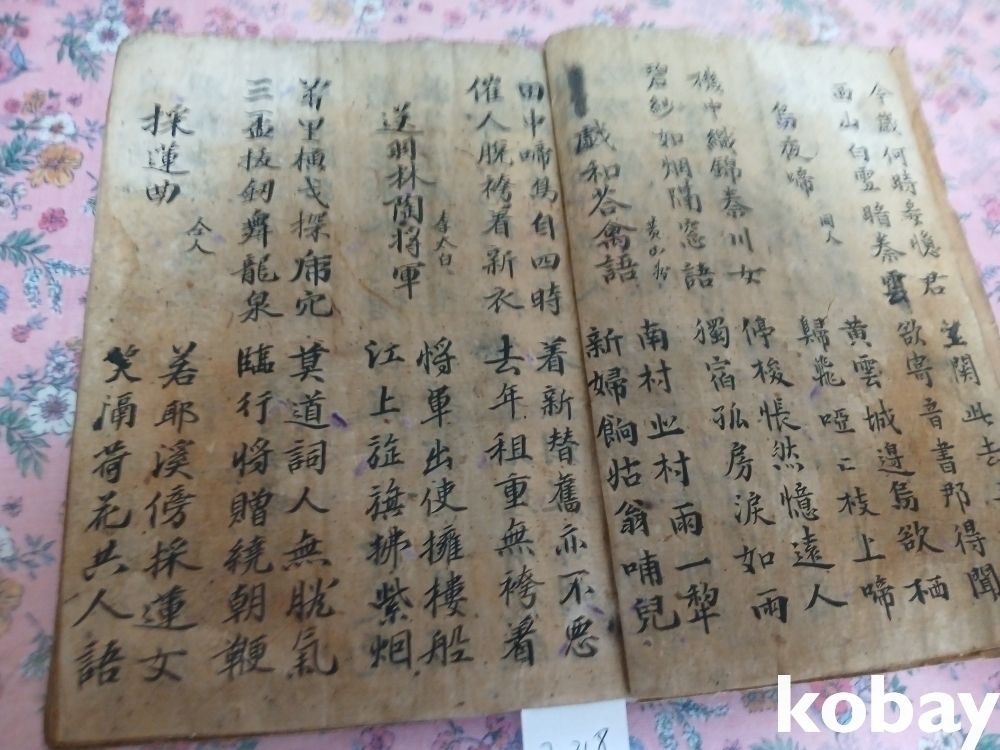 今歲何時妾憶君
西山白雪暗秦雲
關此去
欲寄音書那得聞
烏夜啼 同人
黃雲城邊烏欲栖
歸飛啞〻枝上啼
機中織錦秦川女
碧紗如烟隔窓語
停梭悵然憶遠人
獨宿孤房淚如雨
戯和答禽語 黃山谷
南村北村雨一犂
新婦餉姑翁哺兒
田中啼鳥自四時
催人脫袴着新衣
着新替舊亦不惡
去年租重無袴着
送羽林陶將軍 李太白
將軍出使擁樓船
江上旌旗拂紫烟
萬里橫戈探虎穴
三盃拔釼舞龍泉
莫道詞人無胆氣
臨行將贈繞朝鞭
採蓮曲 仝人
若耶溪傍採蓮女
笑隔荷花共人語
kobay